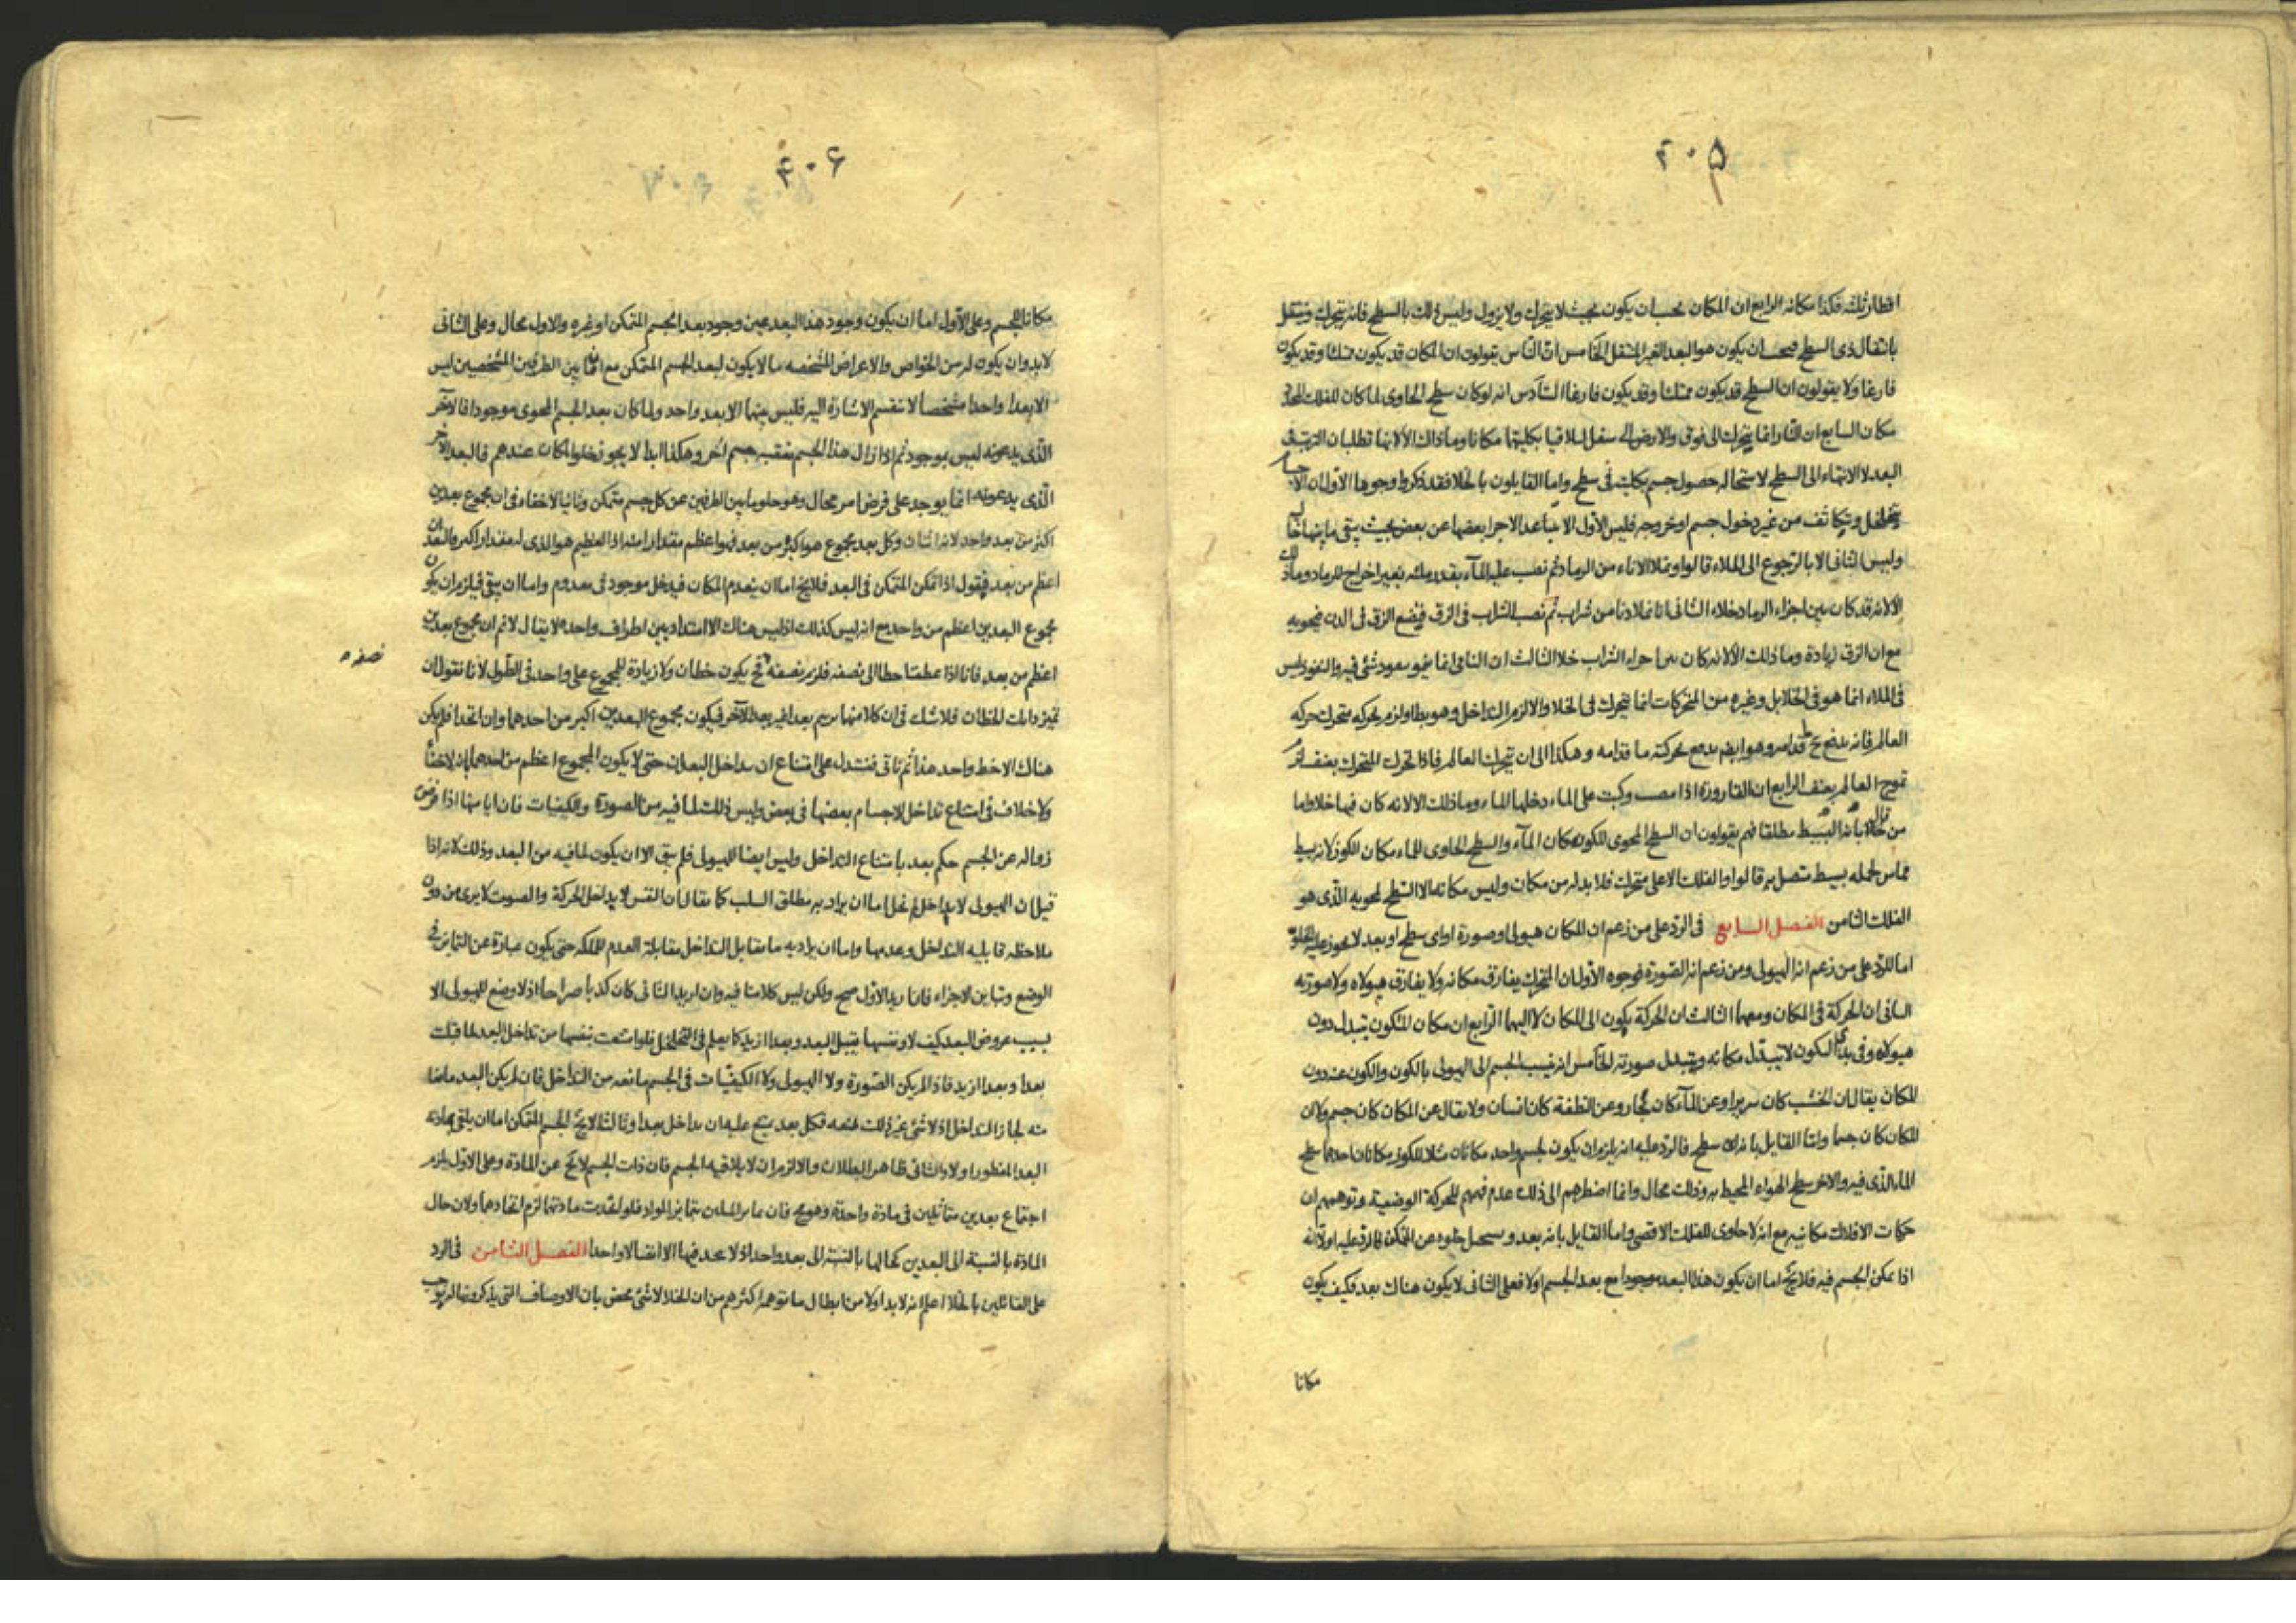 ۴۰۵
اقطار ثلثه فكذا مكانه الرابع ان المكان يجب ان يكون بحيث لا يتحرك ولا يزول وليس ذلك بالسطح فانه يتحرك وينتقل
بانتقال ذى السطح فيجب ان يكون هو البعد الغير المنتقل الخامس ان الناس يقولون ان المكان قد يكون ممتلئا وقد يكون
فارغا ولا يقولون ان السطح قد يكون ممتلئا وقد يكون فارغا السادس انه لو كان سطح الحاوى لما كان للفلك المحدد
مكان السابع ان النار انما يتحرك الى فوق والارض الى سفل ليلاقيا بكليتهما مكانا وما ذاك الا لانهما تطلبان الترتيب فى
البعد لا الانتهاء الى السطح لاستحاله حصول جسم بكليته فى سطح واما القايلون بالخلا فقد ذكروا وجوها الاول ان الاجسام
يتخلخل ويتكاثف من غير دخول جسم او خروجه فليس الاول الا بتباعد الاجزا بعضها عن بعض بحيث يبقى ما بينها خاليا
وليس الثانى الا بالرجوع الى الملاء قالوا ونملا الاناء من الرماد ثم نصب عليه الماء بقدر مله بغير اخراج للرماد وما ذلك
الا لانه قد كان بين اجزاء الرماد خلاء الثانى انا نملا دنا من شراب ثم نصب الشراب فى الزق فيضع الزق فى الدن فيحويه
مع ان الزق زيادة وما ذلك الا لانه كان بين اجزاء الشراب خلا الثالث ان النامى انما ينمو بنفوذ شئ فيه والنفوذ ليس
فى الملاء انما هو فى الخلا بل وغيره من المتحركات انما يتحرك فى الخلا والا لزم التداخل وهو بط او لزم لحركه متحرك حركه
العالم فانه يدفع قدامه وهو ايضا يدفع بحركته ما قدامه وهكذا الى ان يتحرك العالم فاذا تحرك المتحرك بعنف لزم
تموج العالم بعنف الرابع ان القارورة اذا مصت وكبت على الماء دخلها الماء وما ذلك الا لانه كان فيها خلا واما
من قال بانه البسيط مطلقا فهم يقولون ان السطح المحوى للكوز مكان الماء والسطح الحاوى للماء مكان الكوز لانه بسيط
مماس لجمله بسيط متصل به قالوا والفلك الاعلى متحرك فلا بد له من مكان وليس مكانه الا السطح لمحويه الذى هو
الفلك الثامن الفصل السابع فى الرد على من زعم ان المكان هيولى او صورة او اى سطح او بعد لا يجوز عليه الخلو
اما الرد على من زعم انه الهيولى ومن زعم انه الصورة فوجوه الاول ان المتحرك يفارق مكانه ولا يفارق هيولاه ولا صورته
الثانى ان الحركة فى المكان ومعهما الثالث ان الحركة يكون الى المكان لا اليهما الرابع ان مكان المتكون يتبدل دون
هيولاه وفى بدء الكون لا يتبدل مكانه ويتبدل صورته الخامس انه ينسب الجسم الى الهيولى بالكون والكون عنه دون
المكان يقال ان الخشب كان سريرا وعن الماء كان بخار وعن النطفة كان انسان ولا يقال عن المكان كان جسم ولا ان
المكان كان جسما واما القايل بانه اى سطح فالرد عليه انه يلزم ان يكون لجسم واحد مكانان مثلا للكوز مكانان احدهما سطح
الماء الذى فيه والاخر سطح الهواء المحيط به وذلك محال وانما اضطرهم الى ذلك عدم فهمهم للحركة الوضعية وتوهمهم ان
حركات الافلاك مكانيه مع انه لا حاوى للفلك الاقصى واما القايل بانه بعد ويستحيل خلوه عن المتمكن فالرد عليه اولا انه
اذا تمكن الجسم فيه فلا يخ اما ان يكون هذا البعد موجودا مع بعد الجسم اولا فعلى الثانى لا يكون هناك بعد فكيف يكون
مكانا
۴۰۶
مكانا للجسم وعلى الاول اما ان يكون وجود هذا البعد عين وجود بعد الجسم المتمكن او غيره والاول محال وعلى الثانى
لا بد وان يكون له من الخواص والاعراض المشخصه ما لا يكون لبعد الجسم المتمكن مع ان ما بين الطرفين المشخصين ليس
الا بعدا واحدا مشخصا لا تنقسم الاشارة اليه فليس بينهما الا بعد واحد ولما كان بعد الجسم المحوى موجودا فالاخر
الذى يدعونه ليس بموجود ثم اذا زال هذا الجسم يتعقبه جسم اخر وهكذا ابدا لا يجوز خلو المكان عندهم فالبعد الاخر
الذى يدعونه انما يوجد على فرض امر محال وهو خلو ما بين الطرفين عن كل جسم متمكن وثانيا لا خفاء فى ان مجموع بعدين
اكثر من بعد واحد لانه اثنان وكل بعد مجموع هو اكثر من بعد فهو اعظم مقدارا منه اذ العظيم هو الذى له مقدار اكبر والبعدان
اعظم من بعد فيقول اذا تمكن المتمكن فى البعد فلا يخ اما ان ينعدم المكان فيدخل موجود فى معدوم واما ان يبقى فيلزم ان يكون
مجموع البعدين اعظم من واحد مع انه ليس كذلك اذ ليس هناك الا امتداد بين اطراف واحده لا يقال لا نم ان مجموع بعدين
اعظم من بعد فانا اذا عطفنا خطا الى نصفه فلزم نصفه فح يكون خطان ولا زيادة للمجموع على واحد فى الطول لانا نقول ان
نصفه
تميز ذانك الخطان فلا شك فى ان كلا منهما يرسم بعدا غير بعد الاخر فيكون مجموع البعدين اكبر من احدهما وان اتحدا فلم يكن
هناك الا خط واحد هذا ثم تاتى فنستدل على امتناع ان يداخل البعدان حتى لا يكون المجموع اعظم من احدهما بان لا خفاء
ولا خلاف فى امتناع تداخل الاجسام بعضها فى بعض وليس ذلك لما فيه من الصورة والكيفيات فان ايا منها اذا فرض
زواله عن الجسم حكم بعد بامتناع التداخل وليس ايضا للهيولى فلم يبق الا ان يكون لما فيه من البعد وذلك لانه اذا
قيل ان الهيولى لا يداخل لم يخل اما ان يراد به مطلق السلب كما يقال ان النفس لا يداخل الحركة والصوت لا يرى من دون
ملاحظه قابليه التداخل وعدمها واما ان يراد به ما يقابل التداخل مقابلة العدم للملكه حتى يكون عبارة عن التمايز فى
الوضع وتباين الاجزاء فان اريد الاول صح ولكن ليس كلامنا فيه وان اريد الثانى كان كذبا صراحا اذ لا وضع للهيولى الا
بسبب عروض البعد كيف لا ونفسها يقبل البعد وبعدا ازيد كما يعلم فى التخلخل فلو امتنعت بنفسها من تداخل البعد لما قبلت
بعدا وبعدا ازيد فاذا لم يكن الصورة ولا الهيولى ولا الكيفيات فى الجسم مانعه من التداخل فان لم يكن البعد مانعا
منه لجاز التداخل اذ لا شئ غير ذلك يمنعه فكل بعد يمتنع عليه ان يداخل بعدا وثالثا لا يخ الجسم المتمكن اما ان يلقى بمادته
البعد المفطور اولا والثانى ظاهر البطلان والا لزم ان لا يلاقيه الجسم فان ذات الجسم لا يخ عن المادة وعلى الاول يلزم
اجتماع بعدين متماثلين فى مادة واحدة وهو مح فان تمايز المثلين بتمايز المواد فلو اتحدت مادتهما لزم اتحادهما ولان حال
المادة بالنسبة الى البعدين كحالها بالنسبة الى بعد واحد اذ لا يحد فيها الا اتصالا واحدا الفصل الثامن فى الرد
على القائلين بالخلا اعلم انه لا بد اولا من ابطال ما توهمه اكثرهم من ان الخلا لا شئ محض بان الاوصاف التى يذكرونها له يوجب